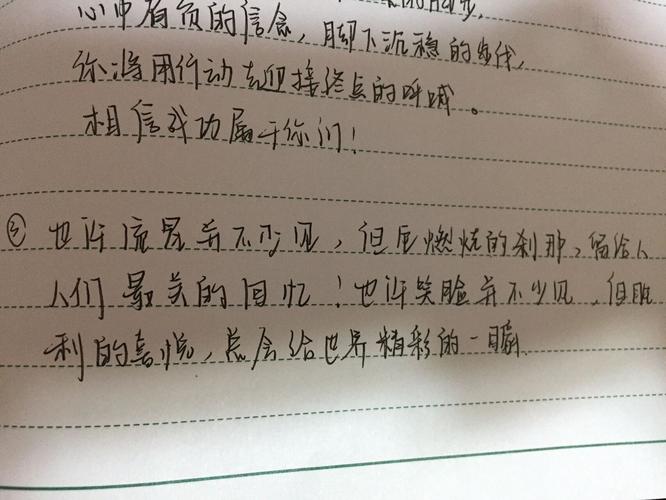 心中肩负的信念，脚下沉稳的步伐，
你将用行动去迎接终点的呼喊。
相信成功属于你们！
③ 也许流星并不少见，但它燃烧的刹那，留给人
人们最美的回忆！也许笑脸并不少见，但胜
利的喜悦，总会给世界精彩的一瞬